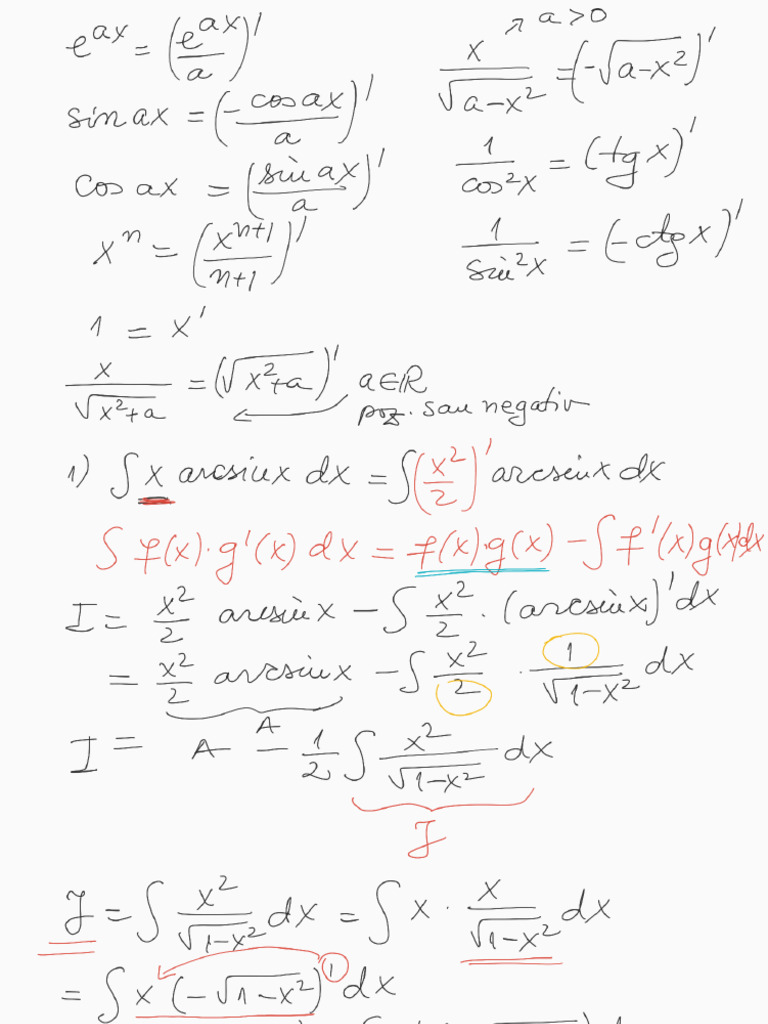 e^{ax} = (e^{ax}/a)'
sin ax = (-cos ax/a)'
cos ax = (sin ax/a)'
x^n = (x^{n+1}/(n+1))'
1 = x'
x/√(x²+a) = (√(x²+a))' a∈R
poz. sau negativ
↗ a>0
x/√(a-x²) = (-√(a-x²))'
1/cos²x = (tg x)'
1/sin²x = (-ctg x)'
1) ∫ x arcsin x dx = ∫ (x²/2)' arcsin x dx
∫ f(x)·g'(x) dx = f(x)·g(x) - ∫ f'(x)g(x)dx
I = x²/2 arcsin x - ∫ x²/2 · (arcsin x)' dx
= x²/2 arcsin x - ∫ x²/2 · 1/√(1-x²) dx
A
I = A - 1/2 ∫ x²/√(1-x²) dx
J
J = ∫ x²/√(1-x²) dx = ∫ x · x/√(1-x²) dx
= ∫ x (-√(1-x²))' dx